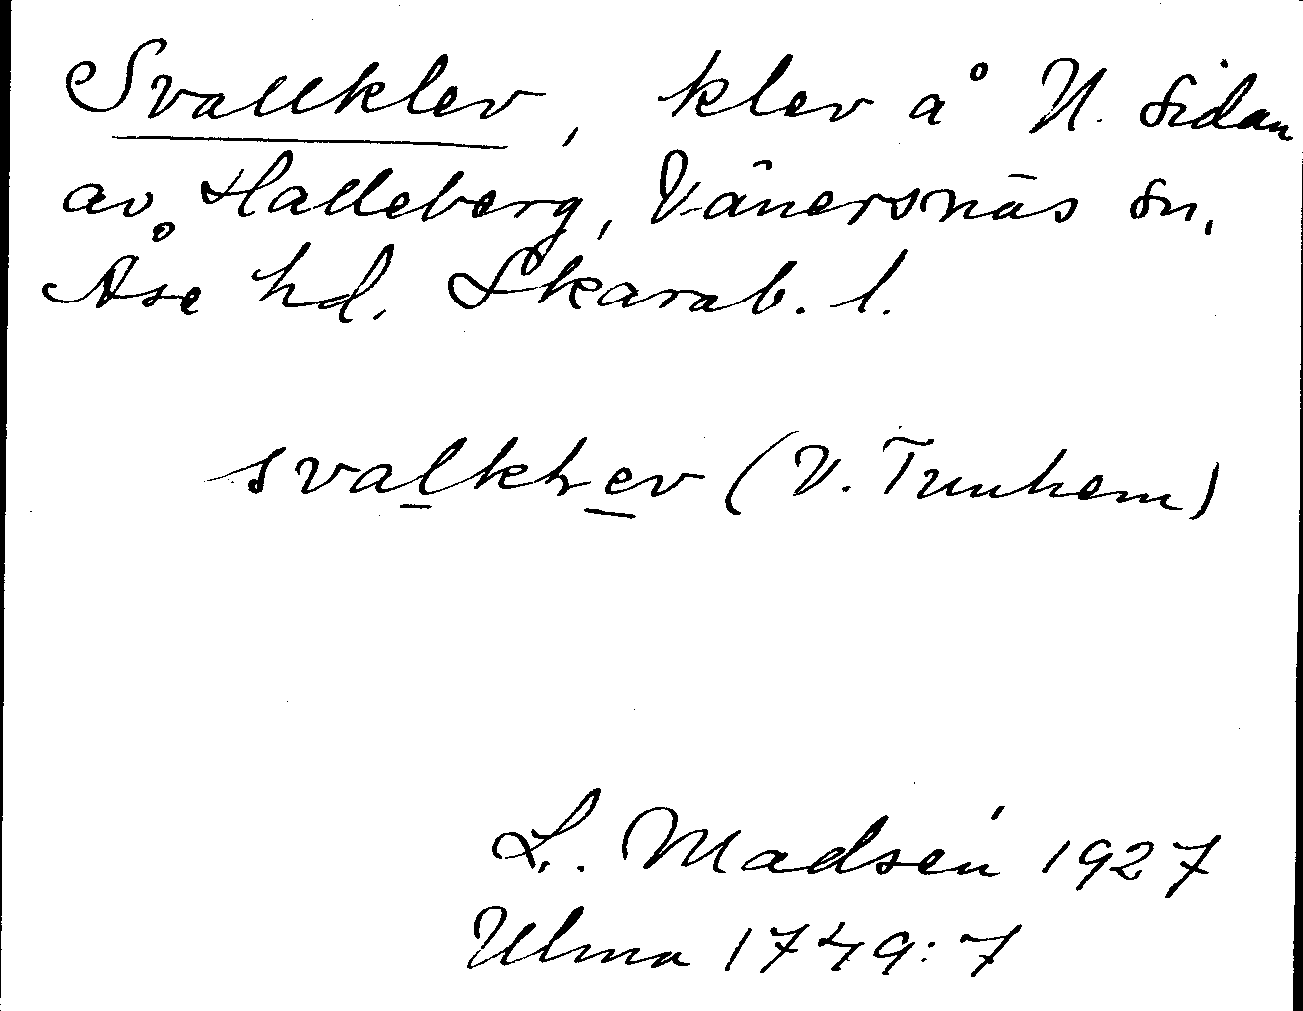 Svallklev, klev å N. sidan
av Halleberg, Vänersnäs sn,
Åse hd. Skarab. l.
svalklev (V. Tunhem)
L. Madsén 1927
Ulma 1749:7